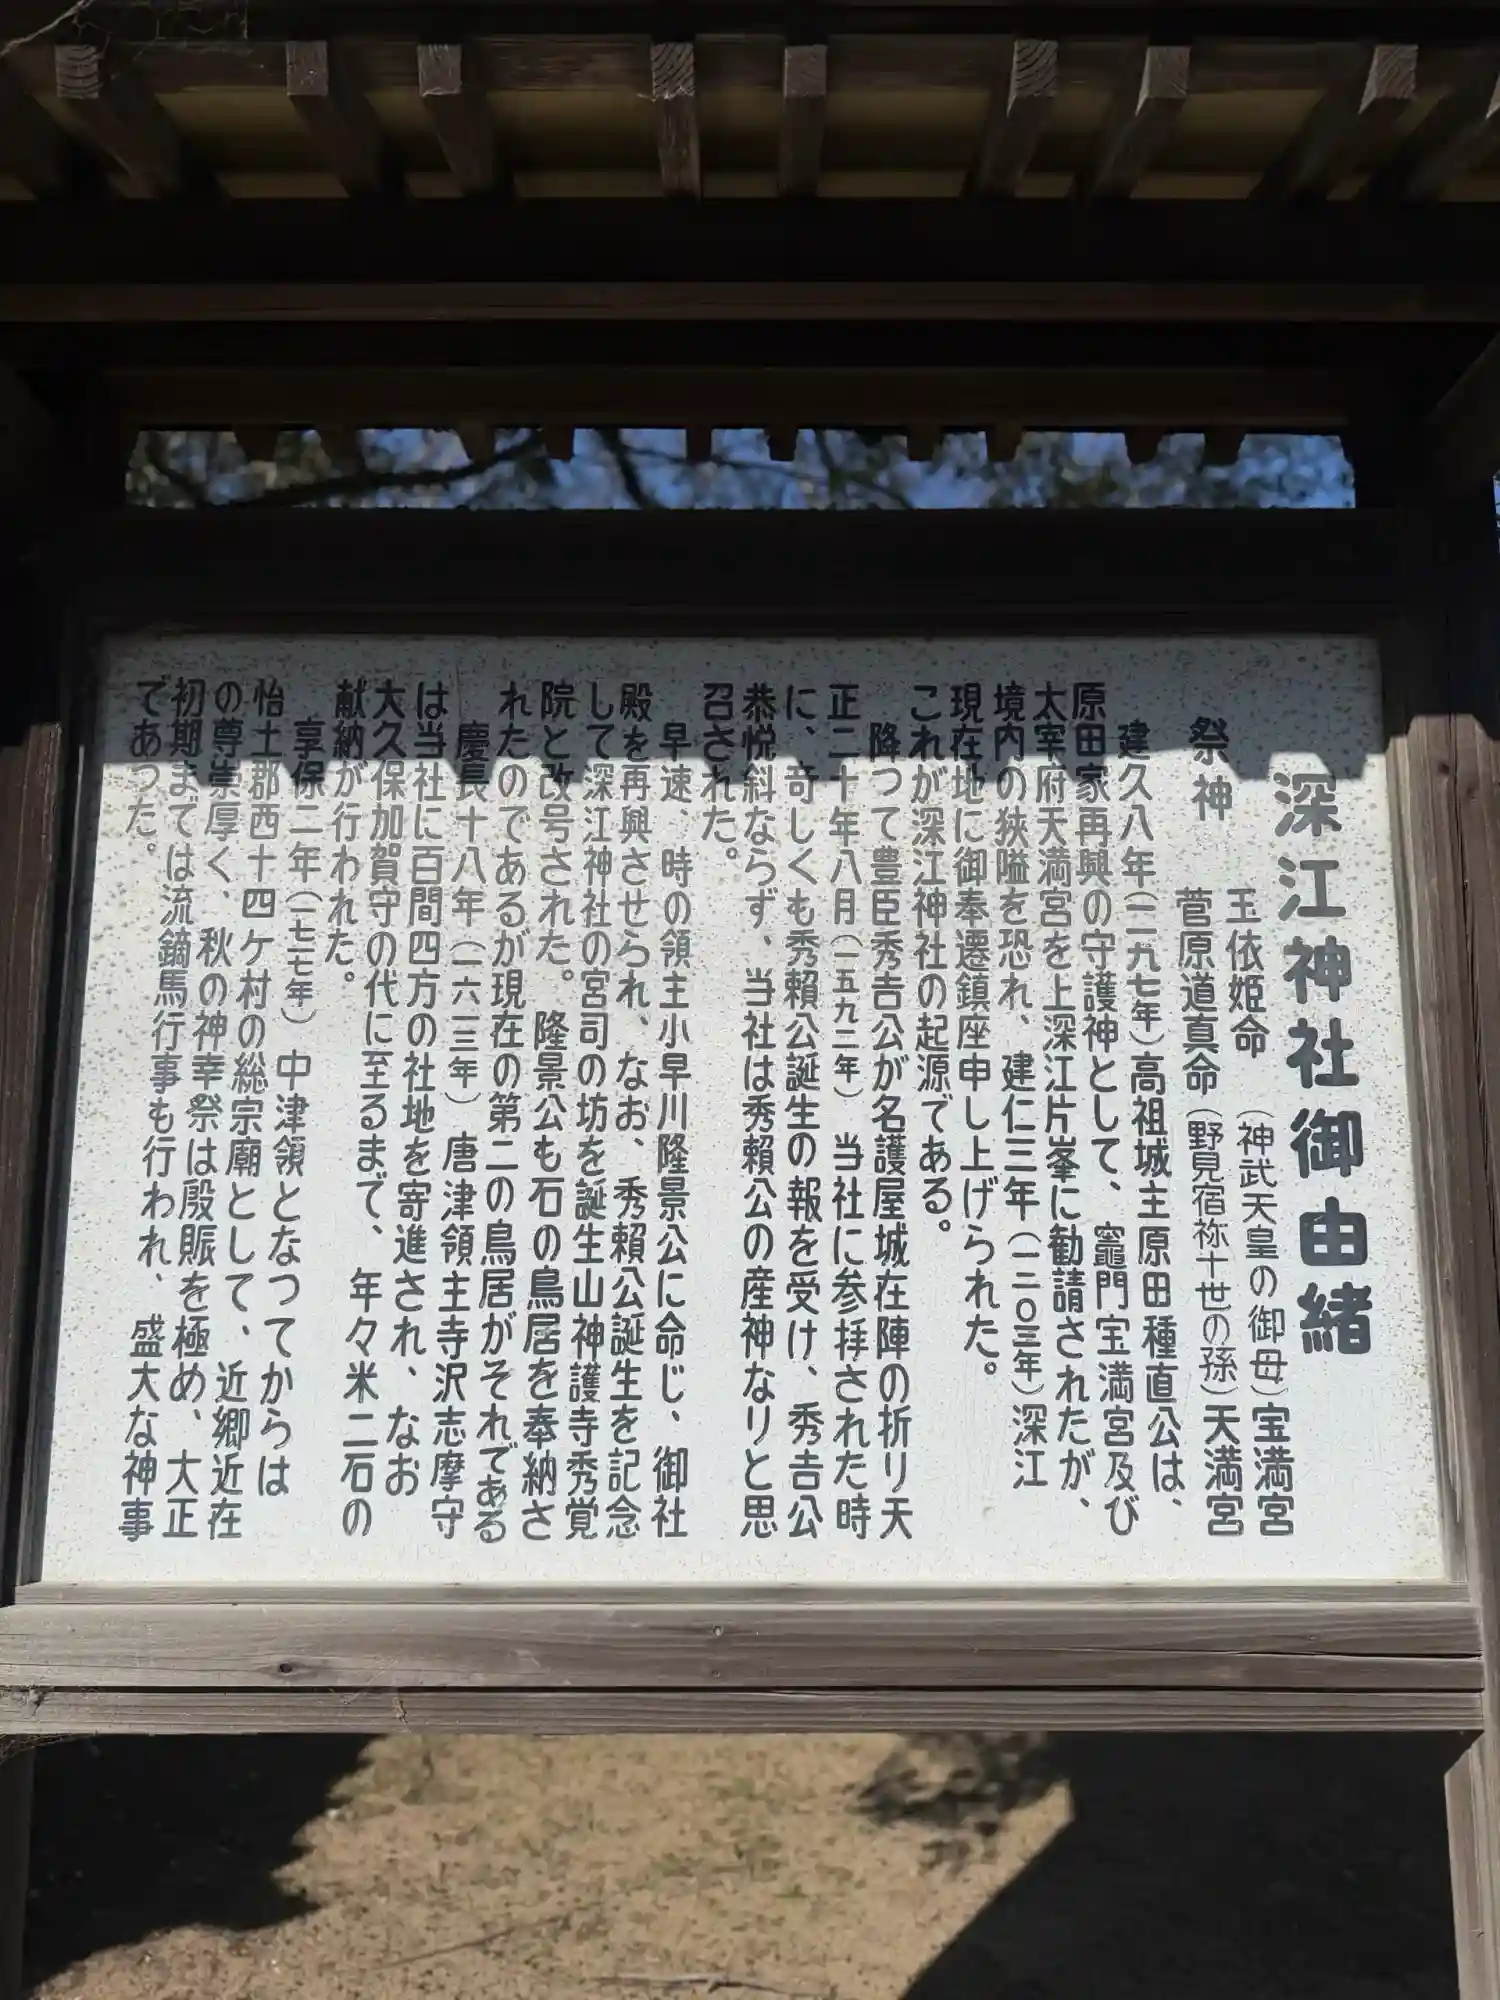 深江神社御由緒
祭神
玉依姫命（神武天皇の御母）宝満宮
菅原道真命（野見宿祢十世の孫）天満宮
建久八年（一一九七年）高祖城主原田種直公は、
原田家再興の守護神として、竈門宝満宮及び
太宰府天満宮を上深江片峯に勧請されたが、
境内の狭隘を恐れ、建仁三年（一二〇三年）深江
現在地に御奉遷鎮座申し上げられた。
これが深江神社の起源である。
降つて豊臣秀吉公が名護屋城在陣の折り天
正二十年八月（一五九二年）当社に参拝された時
に、奇しくも秀賴公誕生の報を受け、秀吉公
恭悦斜ならず、当社は秀賴公の産神なりと思
召された。
早速、時の領主小早川隆景公に命じ、御社
殿を再興させられ、なお、秀賴公誕生を記念
して深江神社の宮司の坊を誕生山神護寺秀覚
院と改号された。隆景公も石の鳥居を奉納さ
れたのであるが現在の第二の鳥居がそれである
慶長十八年（一六一三年）唐津領主寺沢志摩守
は当社に百間四方の社地を寄進され、なお
大久保加賀守の代に至るまで、年々米二石の
献納が行われた。
享保二年（一七一七年）中津領となつてからは
怡土郡西十四ケ村の総宗廟として、近郷近在
の尊崇厚く、秋の神幸祭は殷賑を極め、大正
初期までは流鏑馬行事も行われ、盛大な神事
であつた。